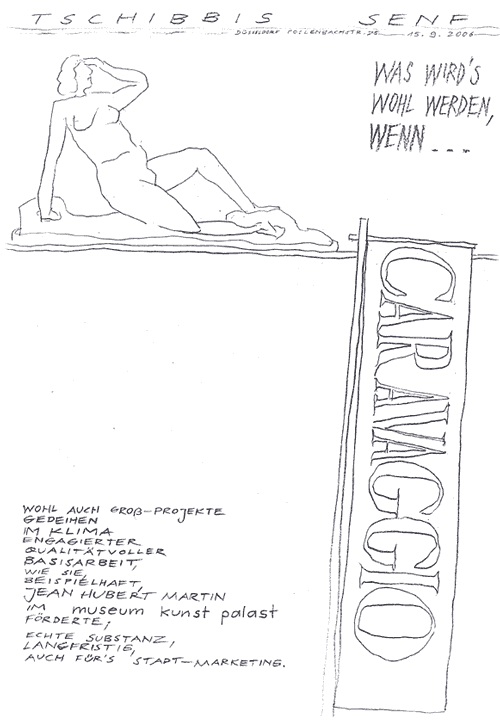 TSCHIBBIS SENF
15.9.2006
WAS WIRD'S
WOHL WERDEN,
WENN ...
CARAVAGGIO
WOHL AUCH GROß-PROJEKTE
GEDEIHEN
IM KLIMA
ENGAGIERTER
QUALITÄTVOLLER
BASISARBEIT,
WIE SIE,
BEISPIELHAFT,
JEAN HUBERT MARTIN
IM museum kunst palast
FÖRDERTE;
ECHTE SUBSTANZ,
LANGFRISTIG,
AUCH FÖR'S STADT-MARKETING.